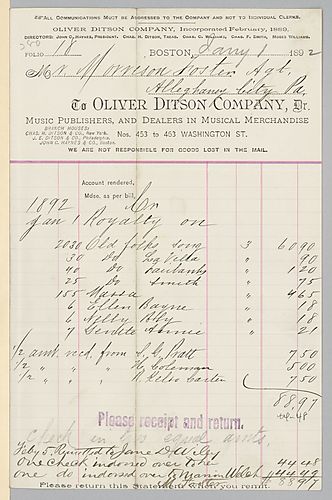 ALL COMMUNICATIONS MUST BE ADDRESSED TO THE COMPANY AND NOT TO INDIVIDUAL CLERKS.
OLIVER DITSON COMPANY, Incorporated February, 1889.
DIRECTORS: JOHN C. HAYNES, PRESIDENT. CHAS. H. DITSON, TREAS. CHAS. C. WILLIAMS, CHAS. F. SMITH, MOSES WILLIAMS.
FOLIO 78 BOSTON, Jany 1 1892
Mr. Morrison Foster Agt.
Alleghany City Pa.
To OLIVER DITSON COMPANY, Dr.
MUSIC PUBLISHERS, AND DEALERS IN MUSICAL MERCHANDISE
BRANCH HOUSES:
CHAS. H. DITSON & CO., New York.
J. E. DITSON & CO., Philadelphia.
JOHN C. HAYNES & CO., Boston.
Nos. 453 to 463 WASHINGTON ST.
WE ARE NOT RESPONSIBLE FOR GOODS LOST IN THE MAIL.
Account rendered,
Mdse. as per bill, Cr
1892
Jan 1 Royalty on
2030 Old folks, Song 3 60 90
30 Do " 90
40 Do " 1 20
25 Do Smith " 75
155 Massa " 4 65
6 Ellen Bayne " 18
6 Nelly Bly " 18
7 Gentle Annie " 21
1/2 amt. recd. from S. G. Pratt 7 50
1/2 " " " Coleman 5 00
1/2 " " " Carter 7 50
88.97
Please receipt and return.
check in two equal amts.
Feby 5. Remitted to Jane D. Wiley
One check indorsed over to her 44 48
one do indorsed over to Marion Welch 44 49
88 97
Please return this Statement when you remit.